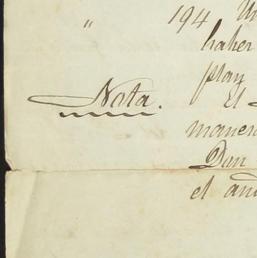 " 194 Un
haber
play
Nota. El
maner
Dan
el and